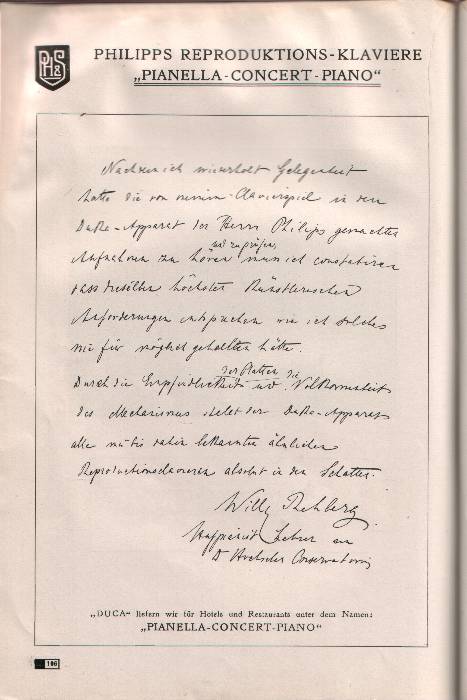 PHILIPPS REPRODUKTIONS-KLAVIERE
„PIANELLA-CONCERT-PIANO“
PH&S
Nachdem ich wiederholt Gelegenheit
hatte die von meinem Clavierspiel in den
DuCa-Apparat des Herrn Philipps gemachten
und zu prüfen,
Aufnahmen zu hören muss ich constatiren
dass dieselben höchsten künstlerischen
Anforderungen entsprechen wie ich solches
nie für möglich gehalten hätte.
der Platten die
Durch die Empfindlichkeit und Vollkommenheit
des Mechanismus stellt der DuCa-Apparat
alle mir bis dahin bekannten ähnlichen
Reproductionsclaviere absolut in den Schatten.
Willy Rehberg
Lehrer am
Dr Hoch'schen Conservatorium
„DUCA“ liefern wir für Hotels und Restaurants unter dem Namen:
„PIANELLA-CONCERT-PIANO“
106